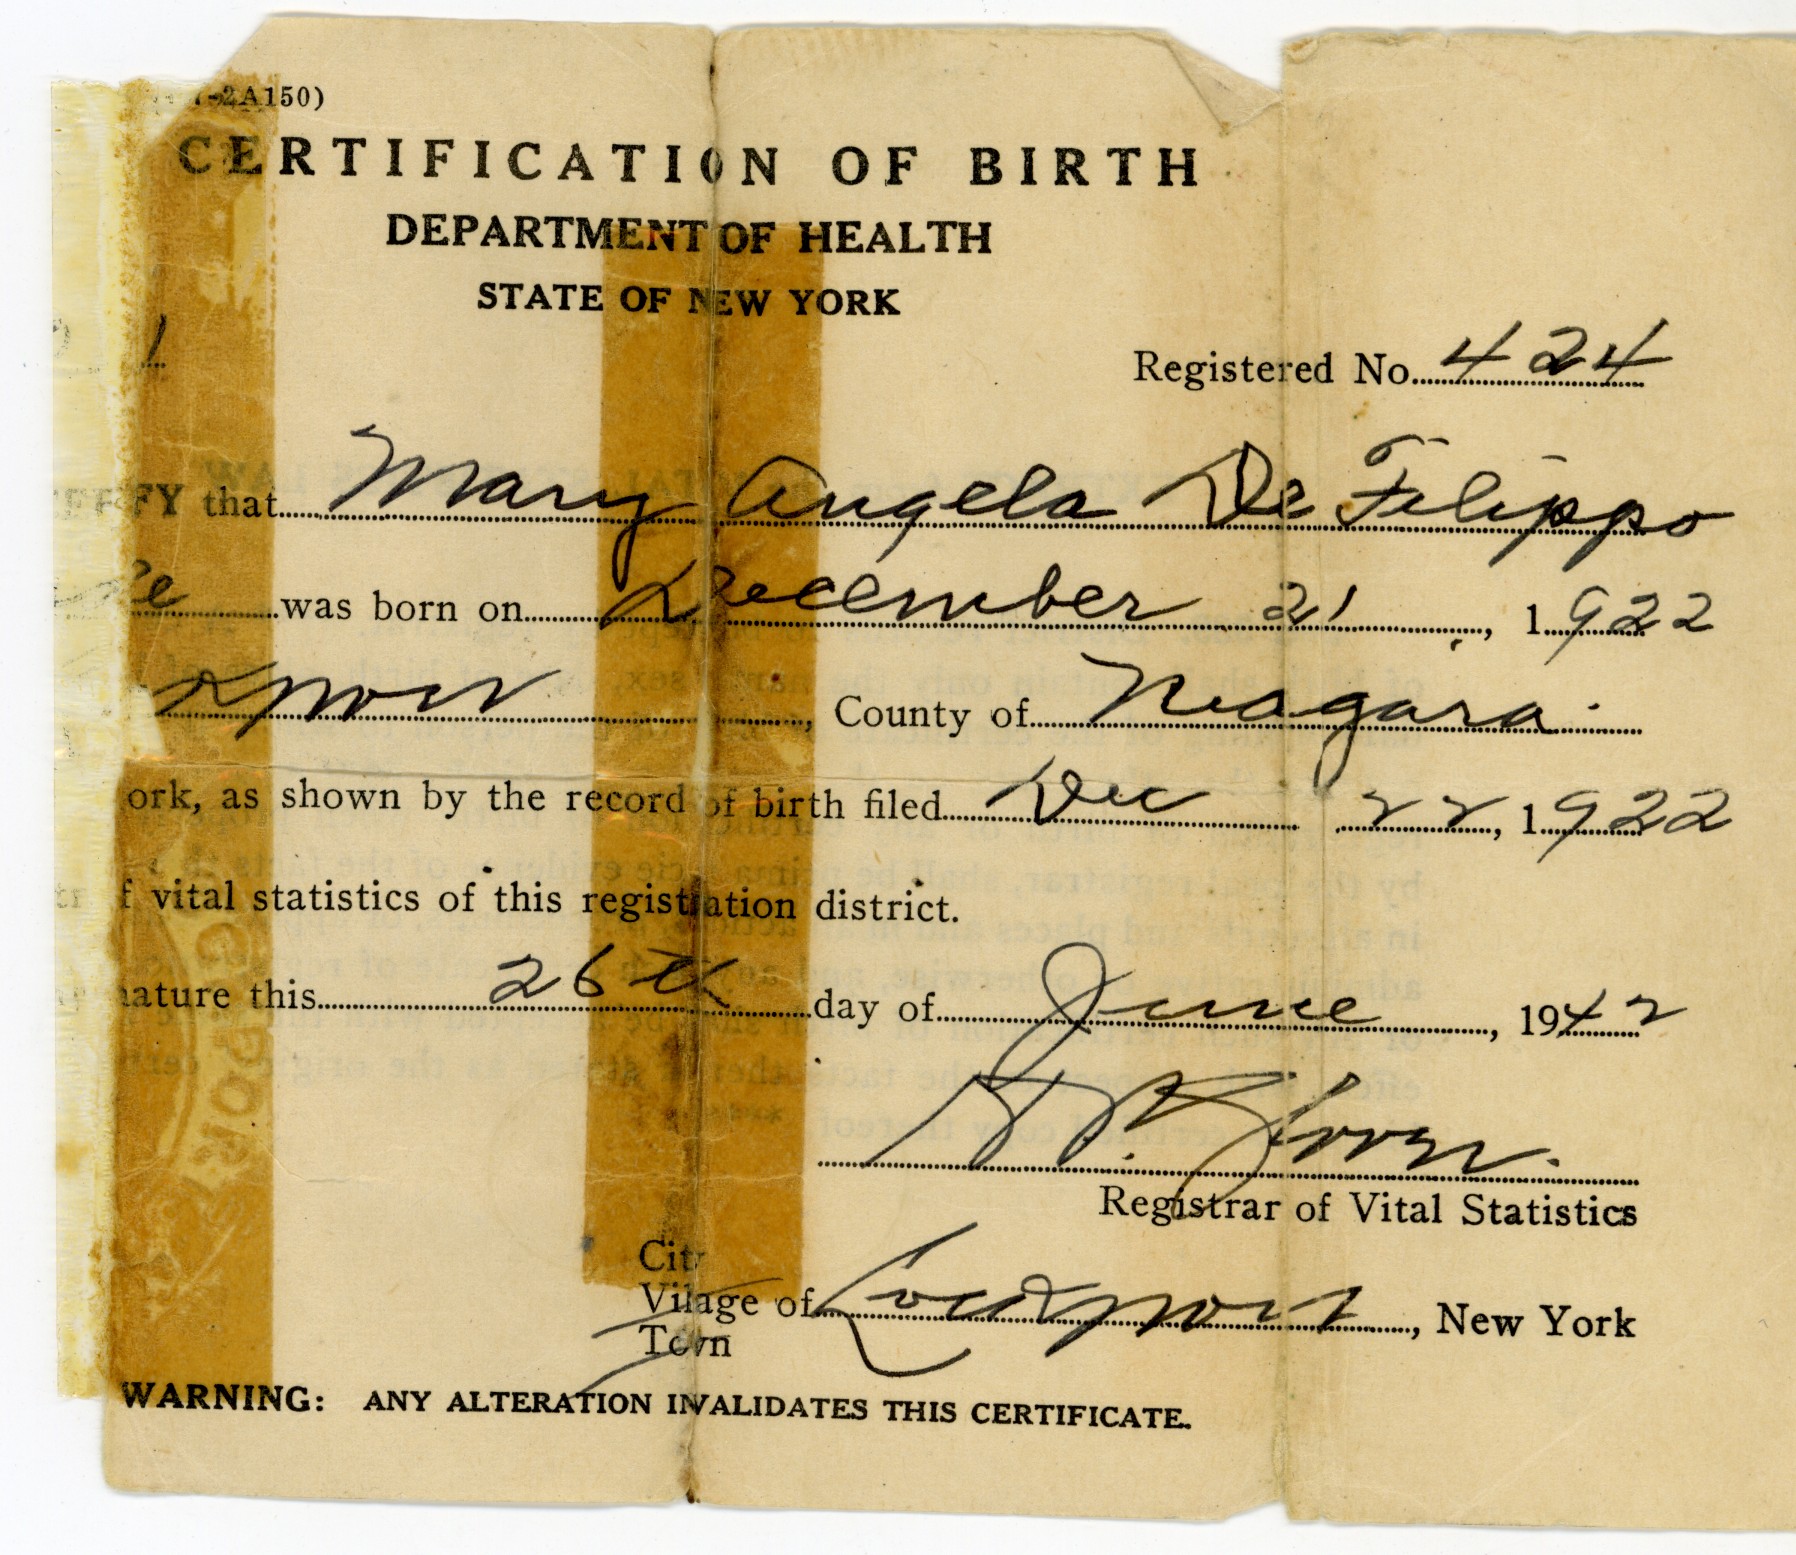 -2A150)
CERTIFICATION OF BIRTH
DEPARTMENT OF HEALTH
STATE OF NEW YORK
1
Registered No. 424
FY that Mary Angela De Filippo
was born on December 21, 1922
kport, County of Niagara
ork, as shown by the record of birth filed Dec 22, 1922
f vital statistics of this registration district.
nature this 26th day of June, 1942
Registrar of Vital Statistics
City
Village of Lockport, New York
Town
WARNING: ANY ALTERATION INVALIDATES THIS CERTIFICATE.